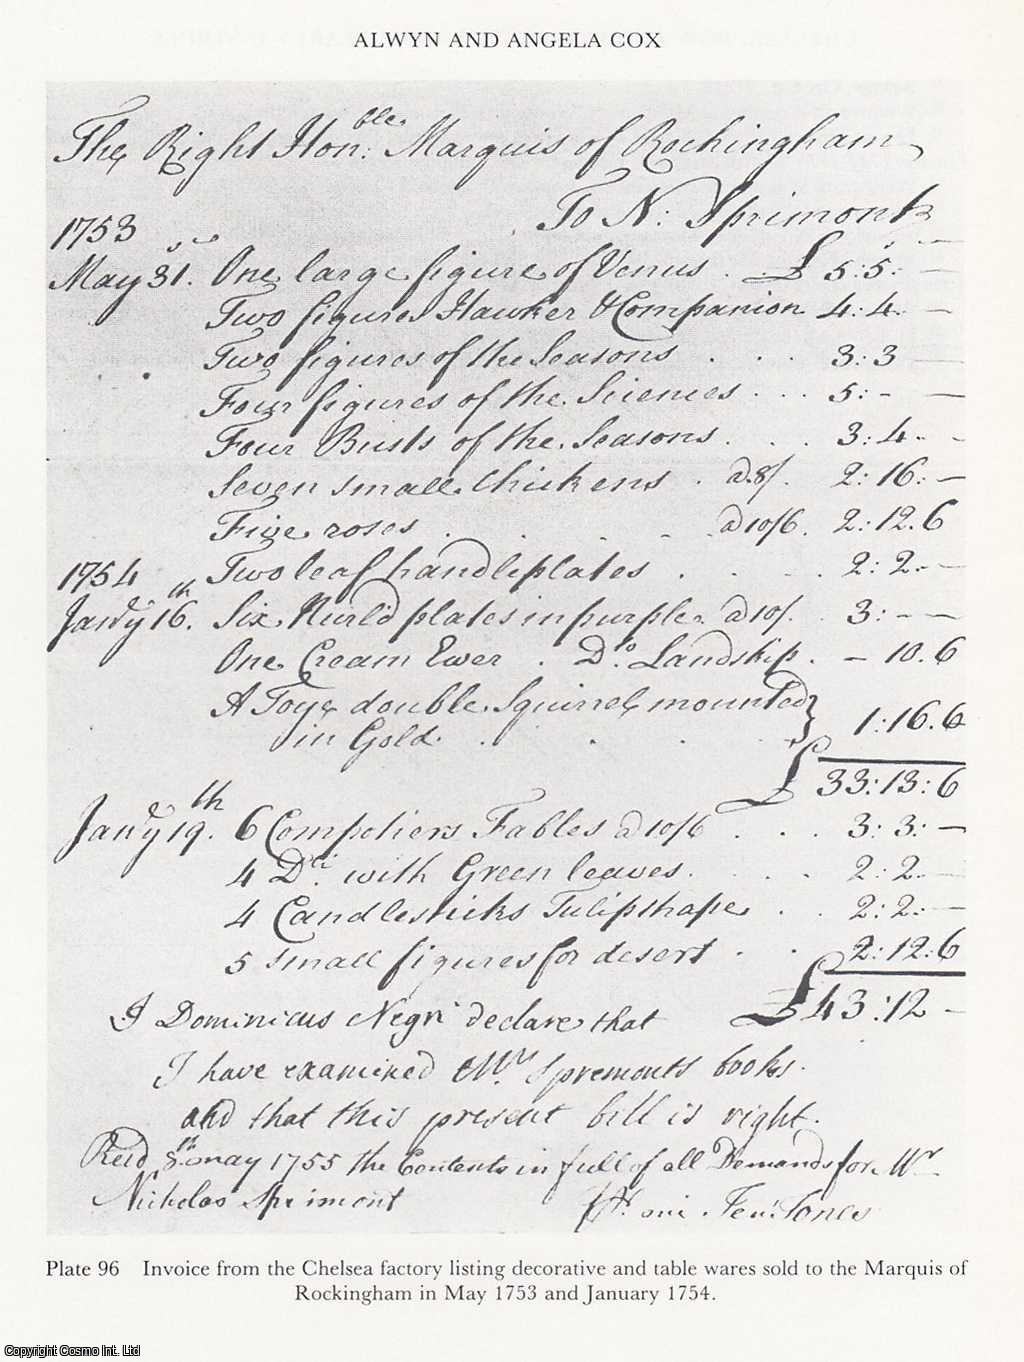 ALWYN AND ANGELA COX
The Right Honble. Marquis of Rockingham,
To N: Sprimont
1753
May 31. One large figure of Venus . £ 5:5:—
Two figures Hawker & Companion 4:4.—
Two figures of the Seasons . . . 3:3—
Four figures of the Sciences . . . 5:-—
Four Busts of the Seasons . . . 3:4.-
Seven small Chickens . a 8/. 2:16:—
Five roses . . . . a 10/6. 2:12.6
1754 Two leaf handl'd plates . . . . 2:2.—
Jan'y 16th. Six Nurld plates in purple a 10/. . 3:——
One Cream Ewer . Do. Landskip . — 10.6
A Toye double Squirrel mounted } 1:16.6
in Gold . . . .
£ 33:13:6
Jan'y 19th. 6 Compotiers Fables a 10/6 . . . 3:3:—
4 Do. with Green leaves. . . . 2:2.—
4 Candlesticks Tulip shape . . 2:2:—
5 small figures for desert . . 2:12:6
£ 43:12 -
I Dominicus Negri declare that
I have examined Mr. Spremonts books.
and that this present bill is right.
Recd 8th may 1755 the Contents in full of all Demands for Mr
Nickolas Sprimont Jones
Plate 96 Invoice from the Chelsea factory listing decorative and table wares sold to the Marquis of
Rockingham in May 1753 and January 1754.
Copyright Cosmo Int. Ltd